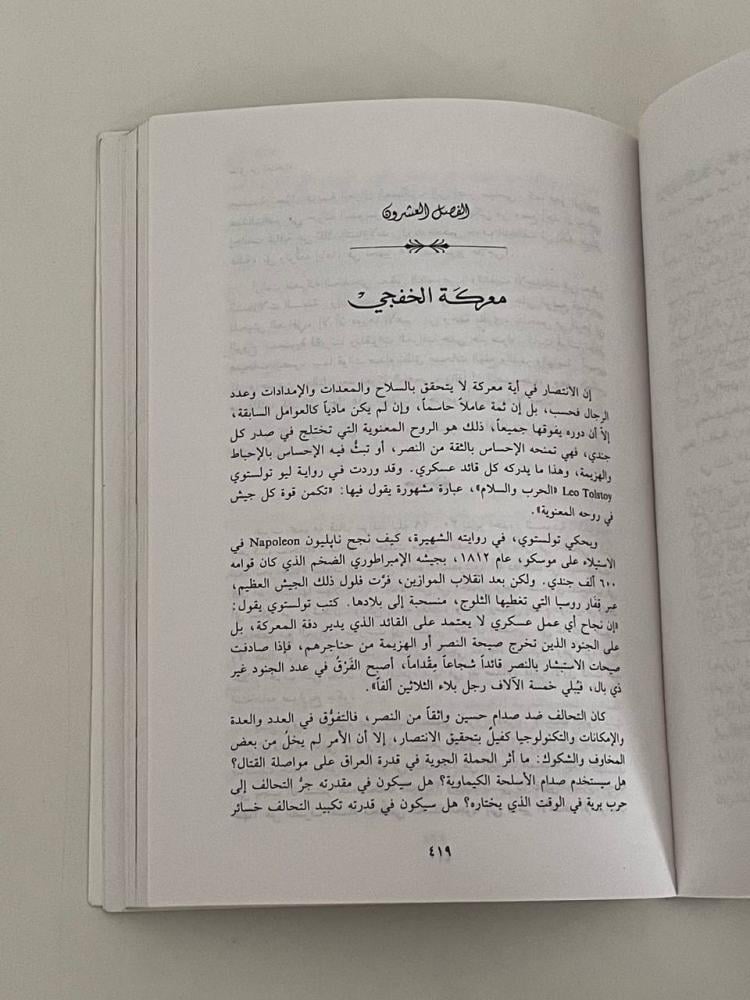 الفصل العشرون
معركة الخفجي
إن الانتصار في أية معركة لا يتحقق بالسلاح والمعدات والإمدادات وعدد
الرجال فحسب، بل إن ثمة عاملاً حاسماً، وإن لم يكن مادياً كالعوامل السابقة،
إلاّ أن دوره يفوقها جميعاً، ذلك هو الروح المعنوية التي تختلج في صدر كل
جندي، فهي تمنحه الإحساس بالثقة من النصر، أو تبثُّ فيه الإحساس بالإحباط
والهزيمة، وهذا ما يدركه كل قائد عسكري. وقد وردت في رواية ليو تولستوي
Leo Tolstoy «الحرب والسلام»، عبارة مشهورة يقول فيها: «تكمن قوة كل جيش
في روحه المعنوية».
ويحكي تولستوي، في روايته الشهيرة، كيف نجح ناپليون Napoleon في
الاستيلاء على موسكو، عام ١٨١٢، بجيشه الإمبراطوري الضخم الذي كان قوامه
٦٠٠ ألف جندي. ولكن بعد انقلاب الموازين، فرَّت فلول ذلك الجيش العظيم،
عبر قِفَار روسيا التي تغطيها الثلوج، منسحبة إلى بلادها. كتب تولستوي يقول:
«إن نجاح أي عمل عسكري لا يعتمد على القائد الذي يدير دفة المعركة، بل
على الجنود الذين تخرج صيحة النصر أو الهزيمة من حناجرهم، فإذا صادفت
صيحات الاستبشار بالنصر قائداً شجاعاً مقْداماً، أصبح الفَرْقُ في عدد الجنود غير
ذي بال، فيُبلي خمسة الآلاف رجل بلاء الثلاثين ألفاً».
كان التحالف ضد صدام حسين واثقاً من النصر، فالتفوُّق في العدد والعدة
والإمكانات والتكنولوجيا كفيلٌ بتحقيق الانتصار، إلا أن الأمر لم يخلُ من بعض
المخاوف والشكوك: ما أثر الحملة الجوية في قدرة العراق على مواصلة القتال؟
هل سيستخدم صدام الأسلحة الكيماوية؟ هل سيكون في مقدرته جرُّ التحالف إلى
حرب برية في الوقت الذي يختاره؟ هل سيكون في قدرته تكبيد التحالف خسائر
٤١٩